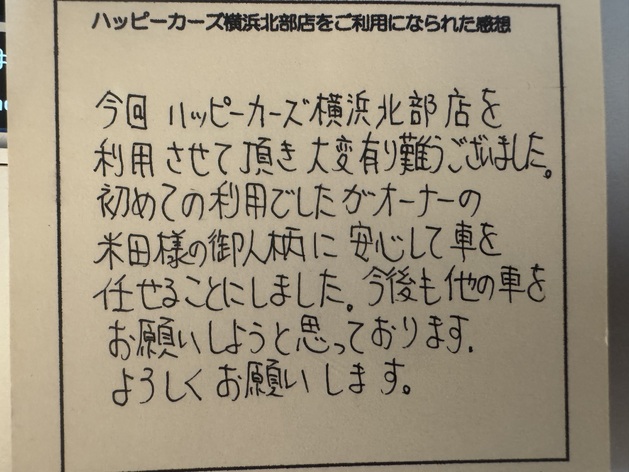 ハッピーカーズ横浜北部店をご利用になられた感想
今回 ハッピーカーズ横浜北部店を
利用させて頂き大変有り難うございました。
初めての利用でしたがオーナーの
米田様の御人柄に安心して車を
任せることにしました。今後も他の車を
お願いしようと思っております.
よろしくお願いします。